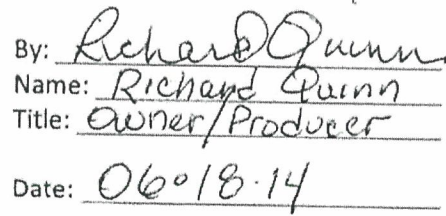 By: Richard Quinn
Name: Richard Quinn
Title: Owner/Producer
Date: 06·18·14